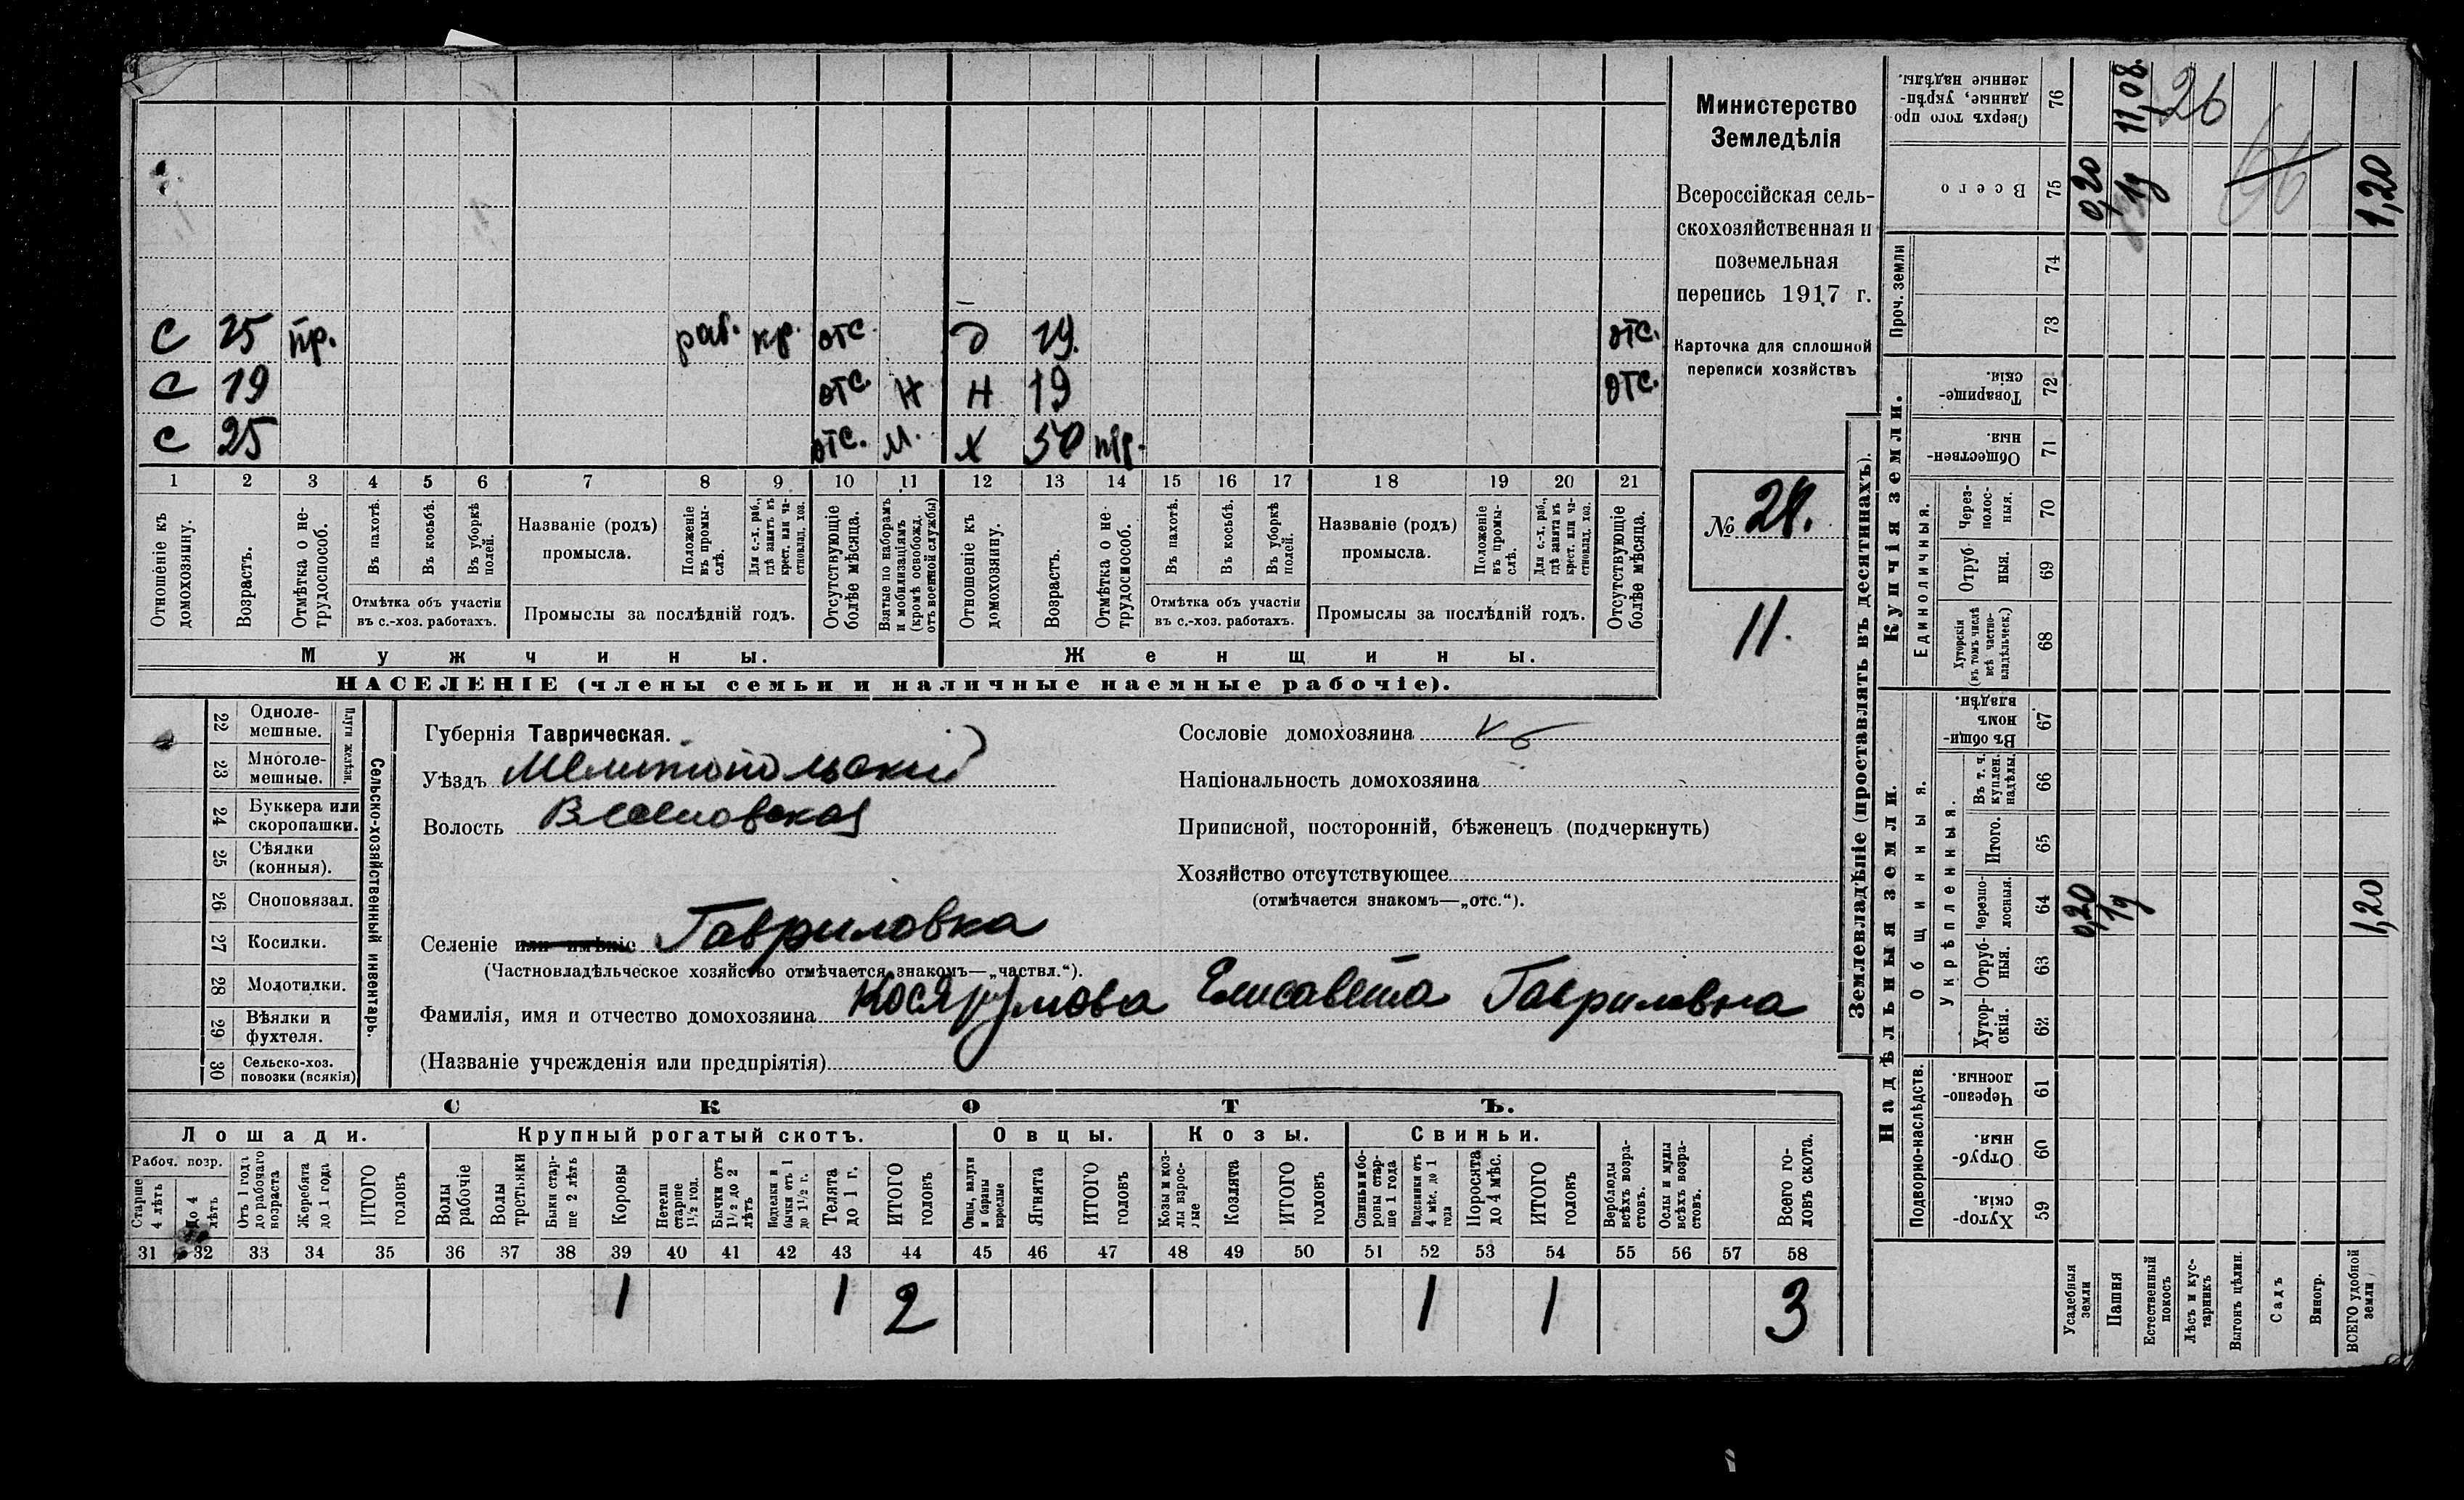 Министерство
Земледѣлія
Всероссійская сель-
скохозяйственная и
поземельная
перепись 1917 г.
Карточка для сплошной
переписи хозяйствъ
№ 28.
11.
с 25 пр. раб. кр. отс. д 19. отс.
с 19 отс. н н 19 отс.
с 25 отс. м. х 50 пр.
1 2 3 4 5 6 7 8 9 10 11 12 13 14 15 16 17 18 19 20 21
Отношеніе къ домохозяину.
Возрастъ.
Отмѣтка о не-трудоспособ.
Въ пахотѣ.
Въ косьбѣ.
Въ уборкѣ полей.
Названіе (родъ) промысла.
Положеніе въ промы-слѣ.
Для с.-х. раб., гдѣ занятъ въ крест. или ча-стновлад. хоз.
Отсутствующіе болѣе мѣсяца.
Взятые по наборамъ и мобилизаціямъ (кромѣ освобожд. отъ военной службы)
Отношеніе къ домохозяину.
Возрастъ.
Отмѣтка о не-трудоспособ.
Въ пахотѣ.
Въ косьбѣ.
Въ уборкѣ полей.
Названіе (родъ) промысла.
Положеніе въ промы-слѣ.
Для с.-х. раб., гдѣ занятъ въ крест. или ча-стновлад. хоз.
Отсутствующіе болѣе мѣсяца.
Отмѣтка объ участіи въ с.-хоз. работахъ.
Промыслы за послѣдній годъ.
Отмѣтка объ участіи въ с.-хоз. работахъ.
Промыслы за послѣдній годъ.
Мужчины.
Женщины.
НАСЕЛЕНІЕ (члены семьи и наличные наемные рабочіе).
22 Одноле-мешные.
23 Многоле-мешные.
Плуги желѣзн.
24 Буккера или скоропашки.
25 Сѣялки (конныя).
26 Сноповязал.
27 Косилки.
28 Молотилки.
29 Вѣялки и фухтеля.
30 Сельско-хоз. повозки (всякія)
Сельско-хозяйственный инвентарь.
Губернія Таврическая.
Уѣздъ Мелитопольскій
Волость Веселовская
Селеніе или имѣніе Гавриловка
(Частновладѣльческое хозяйство отмѣчается знакомъ—„частвл.“).
Фамилія, имя и отчество домохозяина Елисавета Гавриловна
(Названіе учрежденія или предпріятія)
Сословіе домохозяина
Національность домохозяина
Приписной, посторонній, бѣженецъ (подчеркнуть)
Хозяйство отсутствующее
(отмѣчается знакомъ—„отс.“).
СКОТЪ.
Лошади.
Крупный рогатый скотъ.
Овцы.
Козы.
Свиньи.
Рабоч. возр.
Старше 4 лѣтъ
до 4 лѣтъ
Отъ 1 года до рабочаго возраста
Жеребята до 1 года
ИТОГО головъ
Волы рабочіе
Волы третьяки
Быки стар-ше 2 лѣтъ
Коровы
Нетели старше 1½ год.
Бычки отъ 1½ до 2 лѣтъ
Подтелки и бычки отъ 1 до 1½ г.
Телята до 1 г.
ИТОГО головъ
Овцы, валухи и бараны взрослые
Ягнята
ИТОГО головъ
Козы и коз-лы взрос-лые
Козлята
ИТОГО головъ
Свиньи и бо-ровы стар-ше 1 года
Подсвинки отъ 4 мѣс. до 1 года
Поросята до 4 мѣс.
ИТОГО головъ
Верблюды всѣхъ возра-стовъ.
Ослы и мулы всѣхъ возра-стовъ.
Всего го-ловъ скота.
31 32 33 34 35 36 37 38 39 40 41 42 43 44 45 46 47 48 49 50 51 52 53 54 55 56 57 58
1 1 2 1 1 3
Землевладѣніе (проставлять въ десятинахъ).
Надѣльныя земли.
Купчія земли.
Проч. земли
Подворно-наслѣдств.
Общинныя.
Укрѣпленныя.
Единоличныя.
Хутор-скія. 59
Отруб-ныя. 60
Черезпо-лосныя. 61
Хутор-скія. 62
Отруб-ныя. 63
Черезпо-лосныя. 64
Итого. 65
Въ т. ч. куплен. надѣлы. 66
Въ общин-номъ владѣн. 67
Хуторскія (въ томъ числѣ всѣ частно-владѣльческ.) 68
Отруб-ныя. 69
Через-полос-ныя. 70
Обществен-ныя. 71
Товарище-скія. 72
73
74
Всего 75
Сверхъ того про-данные, укрѣп-ленные надѣлы. 76
Усадебныя земли 0,20 0,20
Пашня 11,08.
Естественный покосъ
Лѣсъ и кус-тарникъ
Выгонъ цѣлин.
Садъ
Виногр.
ВСЕГО удобной земли 1,20 1,20
26